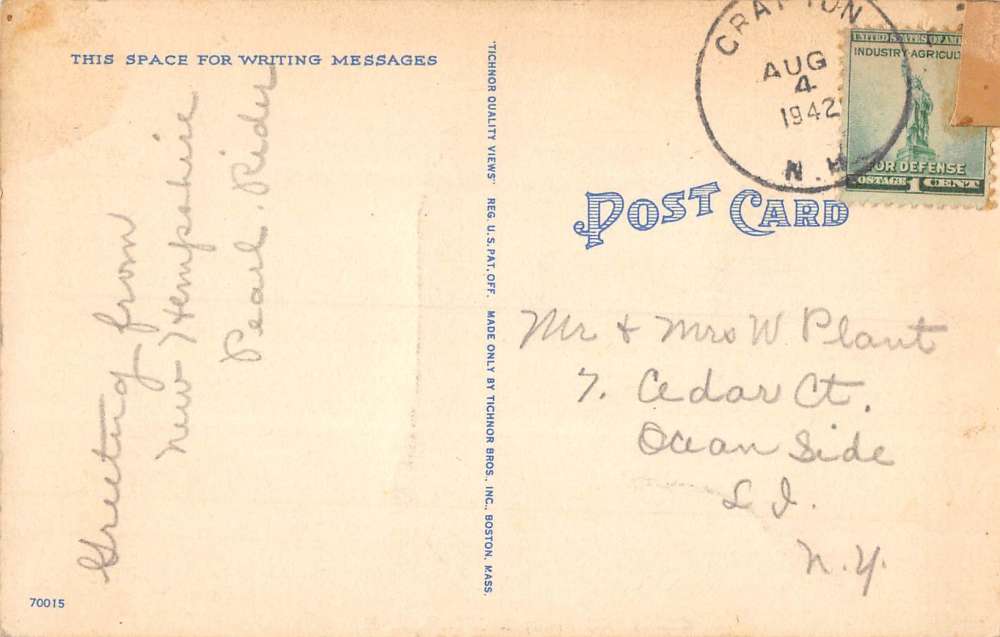 THIS SPACE FOR WRITING MESSAGES
Greeting from
New Hempshire
Pearl. Rider
70015
"TICHNOR QUALITY VIEWS" REG. U.S. PAT. OFF. MADE ONLY BY TICHNOR BROS., INC., BOSTON, MASS.
GRAFTON
AUG
4
1942
N.H.
UNITED STATES OF AM
INDUSTRY-AGRICUL
FOR DEFENSE
POSTAGE 1 CENT
POST CARD
Mr & Mrs W Plant
7. Cedar Ct.
Ocean Side
L I.
N.Y.